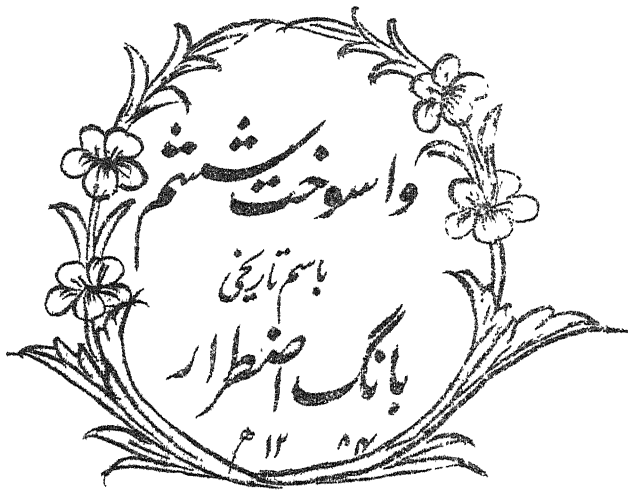 واسوخت ششم
باسم تاریخی
بانگ اضطرار
۱۲۸۴ھ